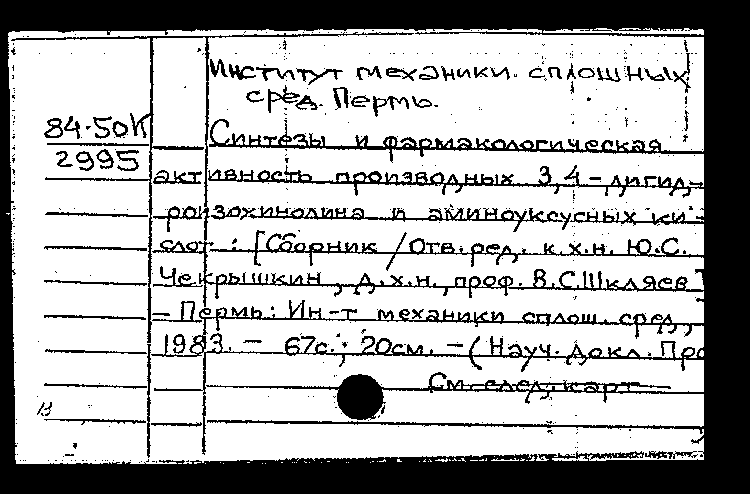 Институт механики сплошных
сред. Пермь.
84-50К
2995
Синтезы и фармакологическая
активность производных 3,4-дигид-
роизохинолина и аминоуксусных ки-
слот : [Сборник / Отв. ред. к.х.н. Ю.С.
Чекрышкин, д.х.н., проф. В.С.Шкляев]
- Пермь: Ин-т механики сплош. сред,
1983. - 67с.; 20см. - (Науч. докл. Пре
См. след. карт